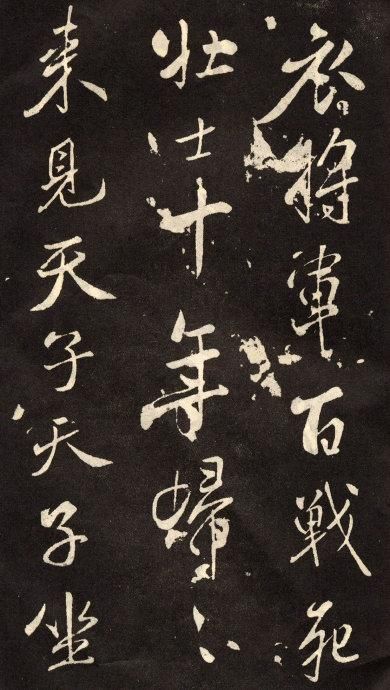 衣將軍百戰死
壯士十年歸々
來見天子天子坐